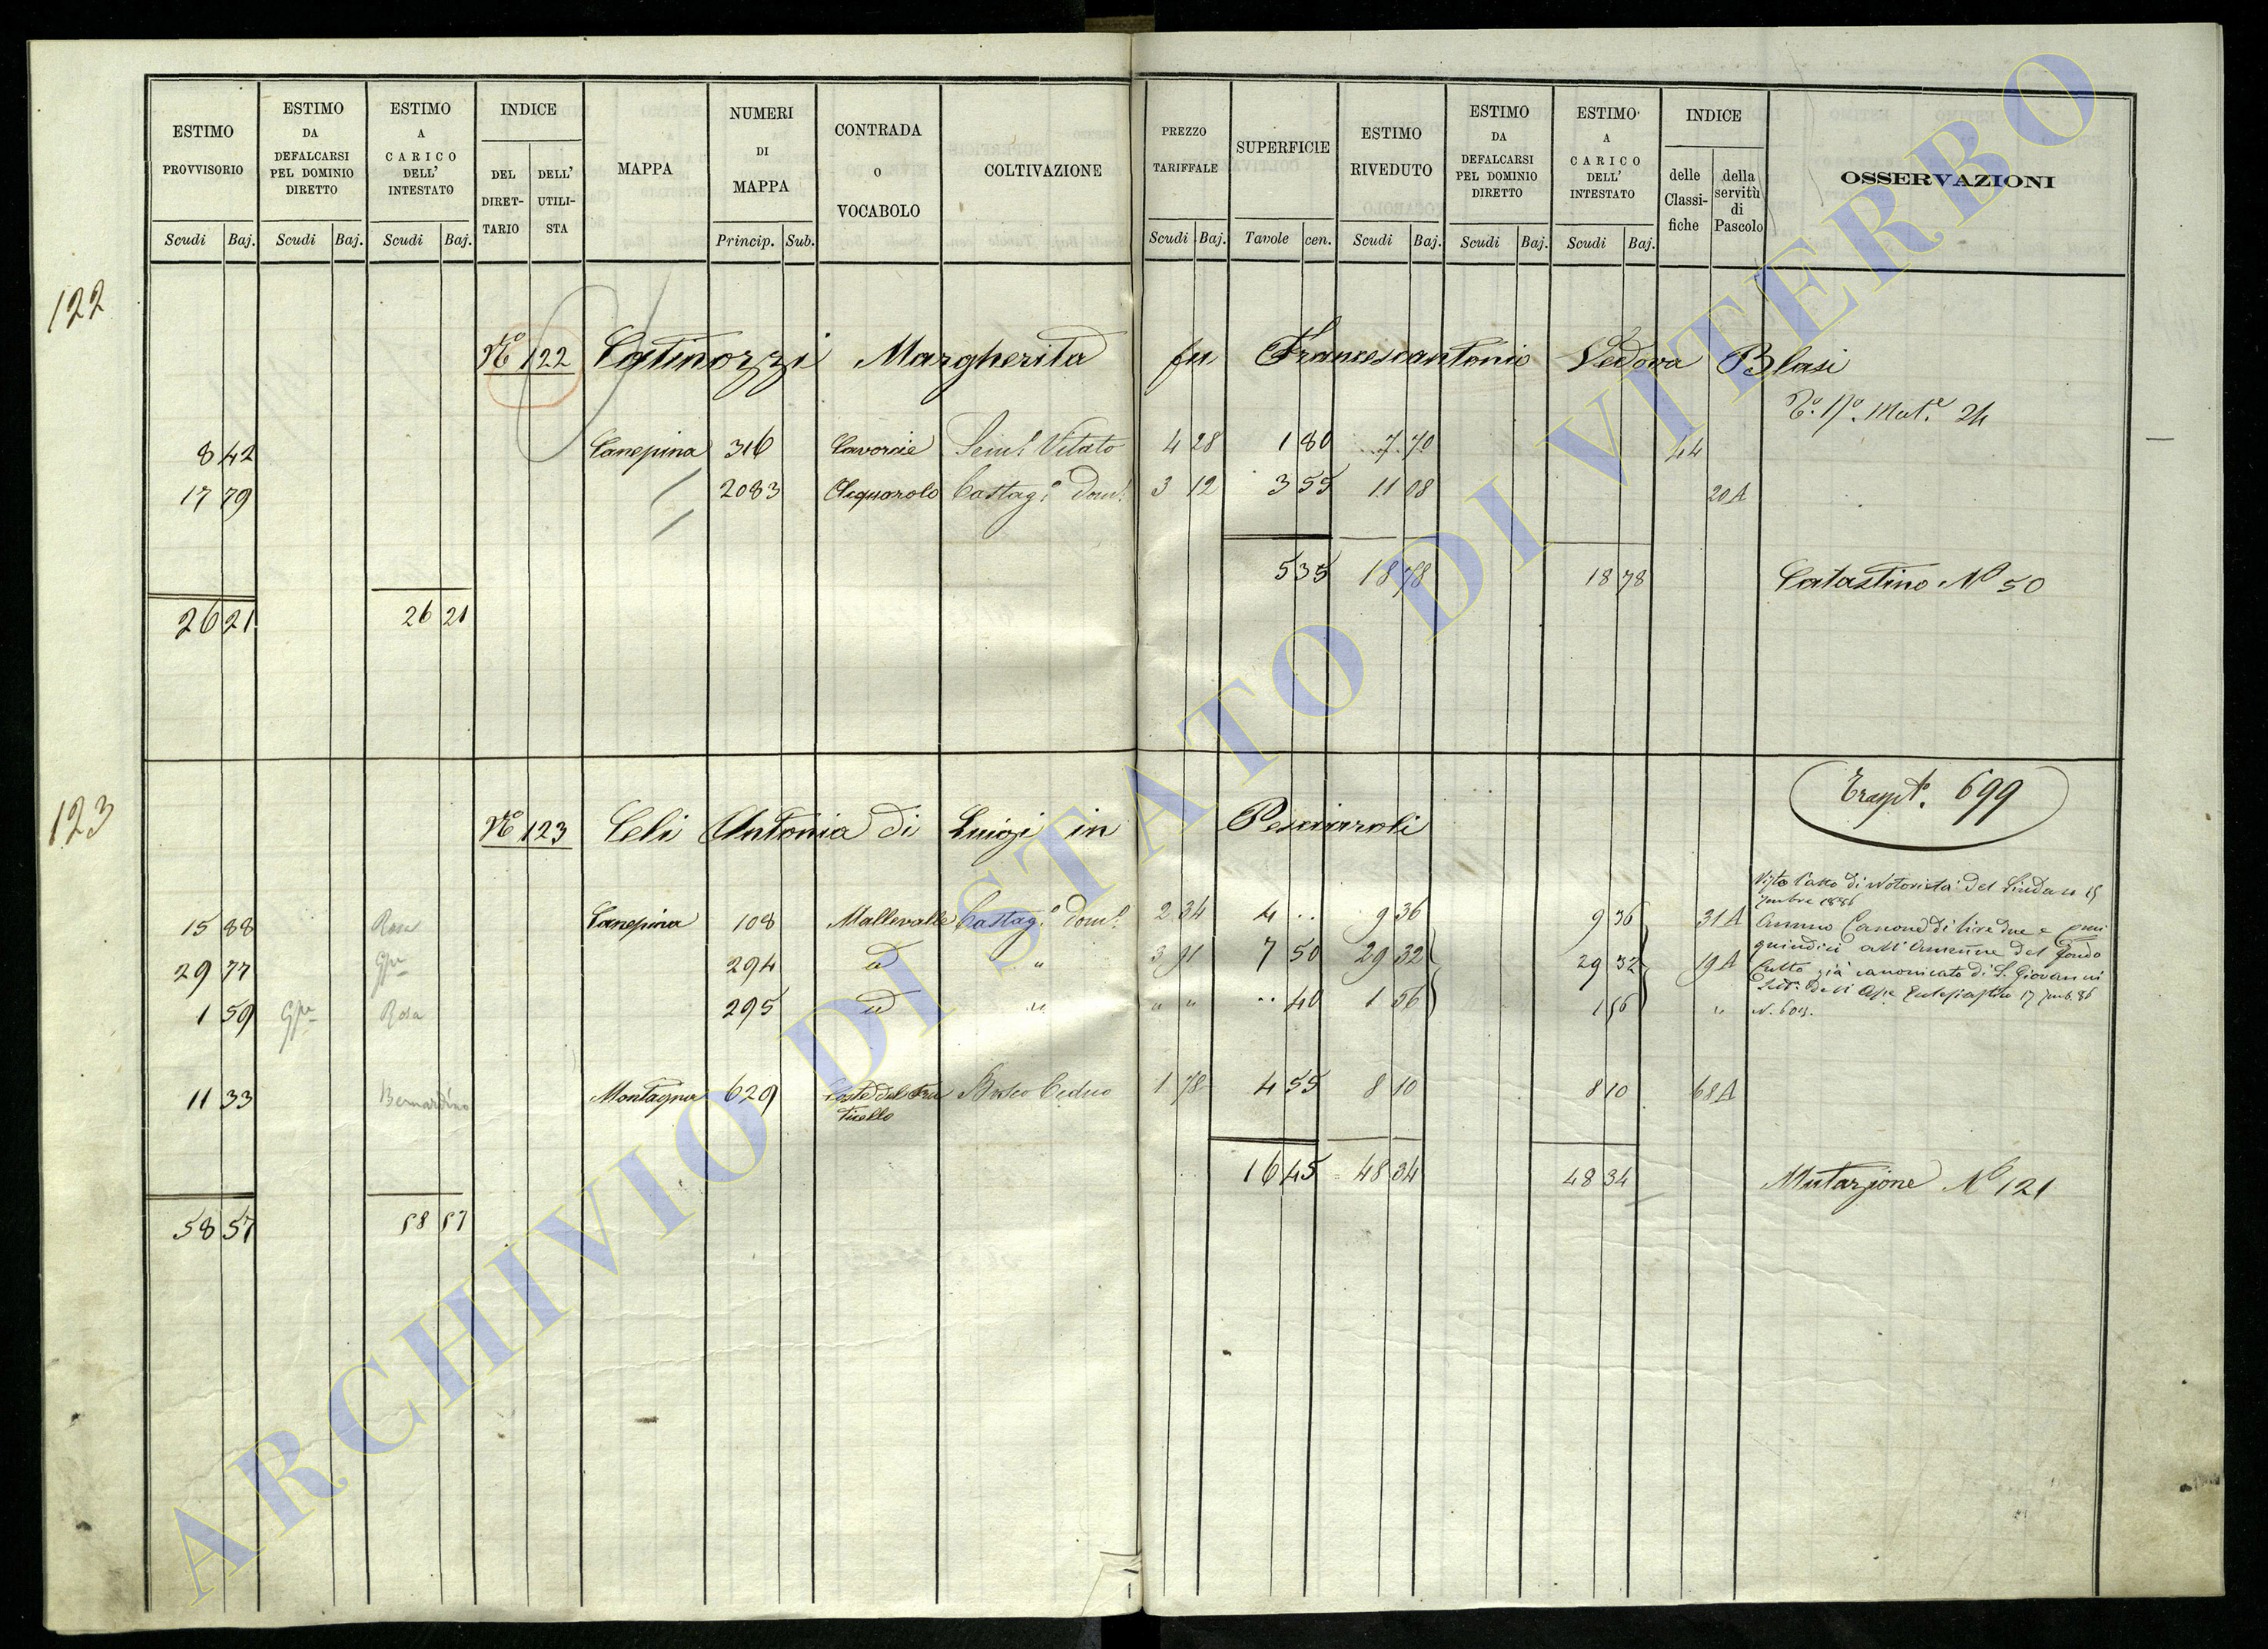 ESTIMO PROVVISORIO ESTIMO DA DEFALCARSI PEL DOMINIO DIRETTO ESTIMO A CARICO DELL' INTESTATO INDICE DEL DIRET-TARIO DELL' UTILI-STA MAPPA NUMERI DI MAPPA CONTRADA O VOCABOLO COLTIVAZIONE PREZZO TARIFFALE SUPERFICIE ESTIMO RIVEDUTO ESTIMO DA DEFALCARSI PEL DOMINIO DIRETTO ESTIMO A CARICO DELL' INTESTATO INDICE delle Classi-fiche della servitù di Pascolo OSSERVAZIONI
Scudi Baj. Scudi Baj. Scudi Baj. Princip. Sub. Scudi Baj. Tavole cen. Scudi Baj. Scudi Baj. Scudi Baj.
122
No 122 Catinozzi Margherita fu Francescantonio Vedova Blasi
24
8 42 Canepina 316 Sem.o Vitato 4 28 1 80 7 70 44
17 79 2083 Acquarolo Castag.o Dom.o 3 12 3 55 11 08 20A
5 35 18 78 18 78 Catastino No 50
26 21 26 21
123
Trasp.to 699
No 123 Celi Antonia di Luigi in Pesciaroli
Visto l'atto di Notorietà del Sindaco 15
15 88 Rosa Canepina 108 Mallevalle Castag.o Dom.o 2 34 4 .. 9 36 9 36 31A Annuo Canone di lire due e
quindici
29 77 Gpe 294 id " 3 91 7 50 29 32 29 32 19A Culto già canonicato di S. Giovanni
1 59 Gpe Rosa 295 id " " " .. 40 1 56 1 56 "
11 33 Bernardino Montagna 629 Bosco Ceduo 1 78 4 55 8 10 8 10 68A
16 45 48 34 48 34 Mutazione No 121
58 57 58 57
ARCHIVIO DI STATO DI VITERBO